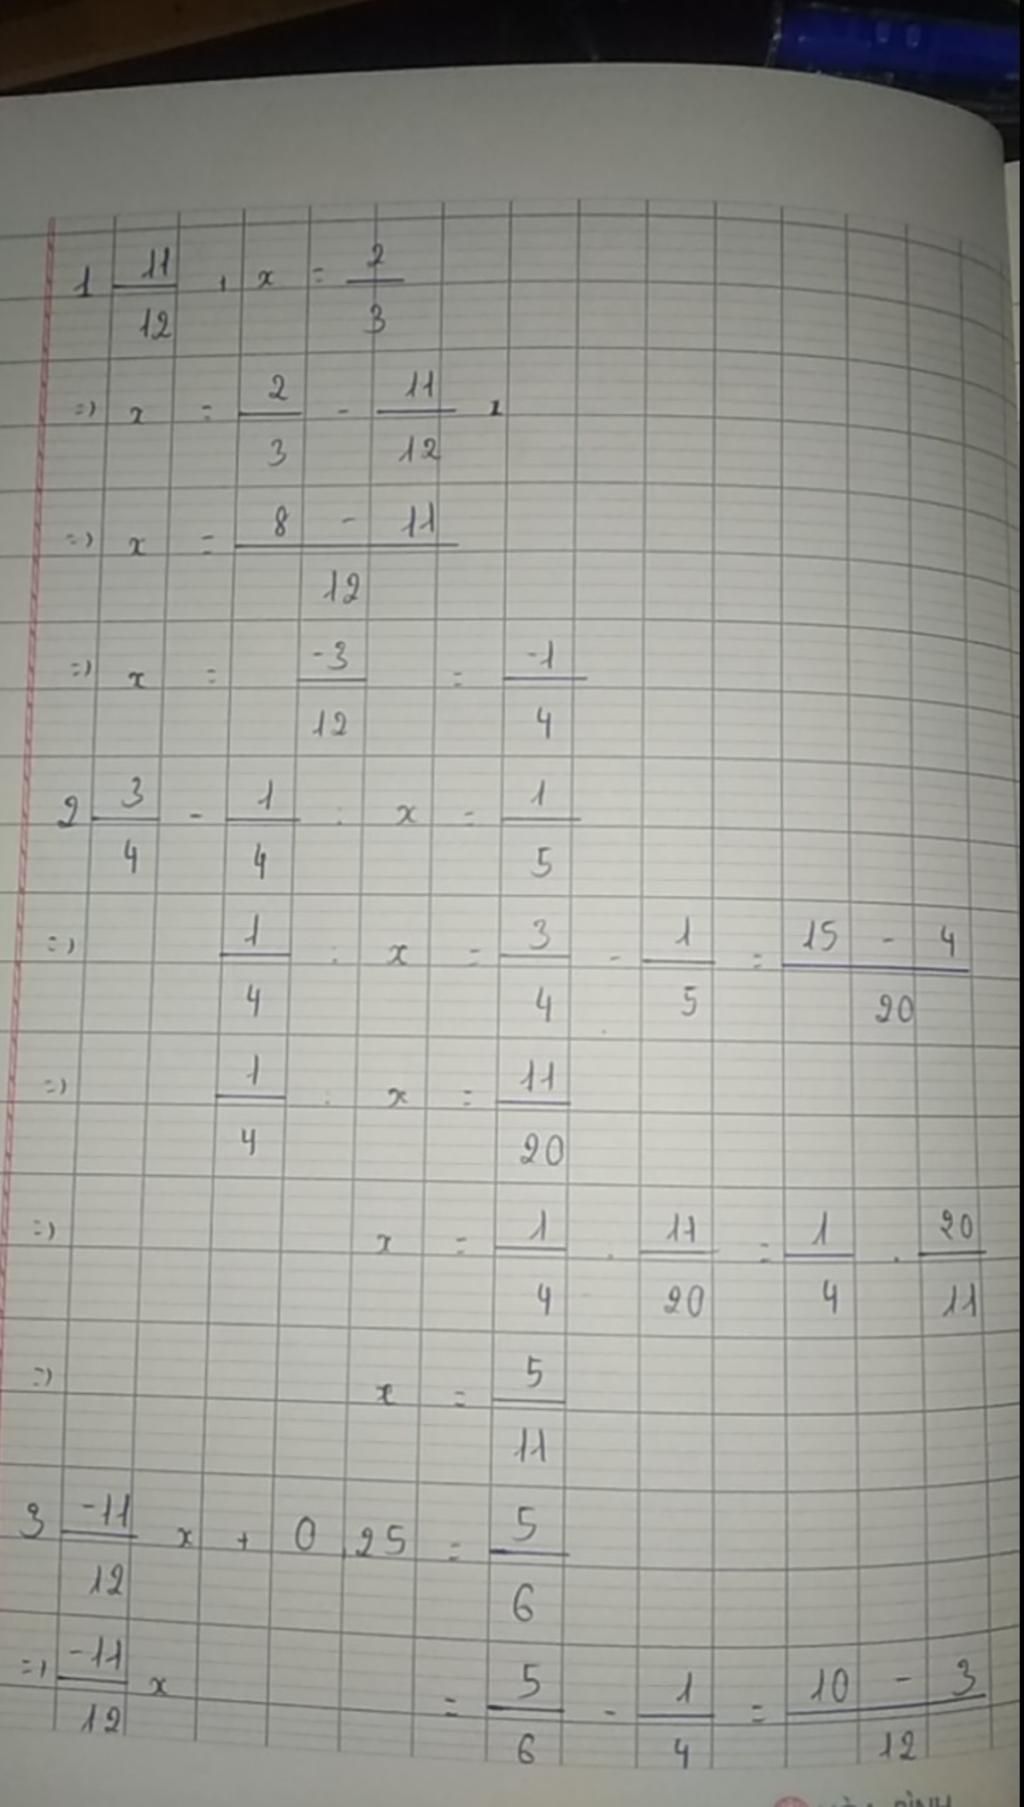 1 11/12 + x = 2/3
=> x = 2/3 - 11/12
=> x = (8 - 11)/12
=> x = -3/12 = -1/4
2 3/4 - 1/4 : x = 1/5
=> 1/4 : x = 3/4 - 1/5 = (15 - 4)/20
=> 1/4 : x = 11/20
=> x = 1/4 : 11/20 = 1/4 . 20/11
=> x = 5/11
3 -11/12 x + 0,25 = 5/6
=> -11/12 x = 5/6 - 1/4 = (10 - 3)/12